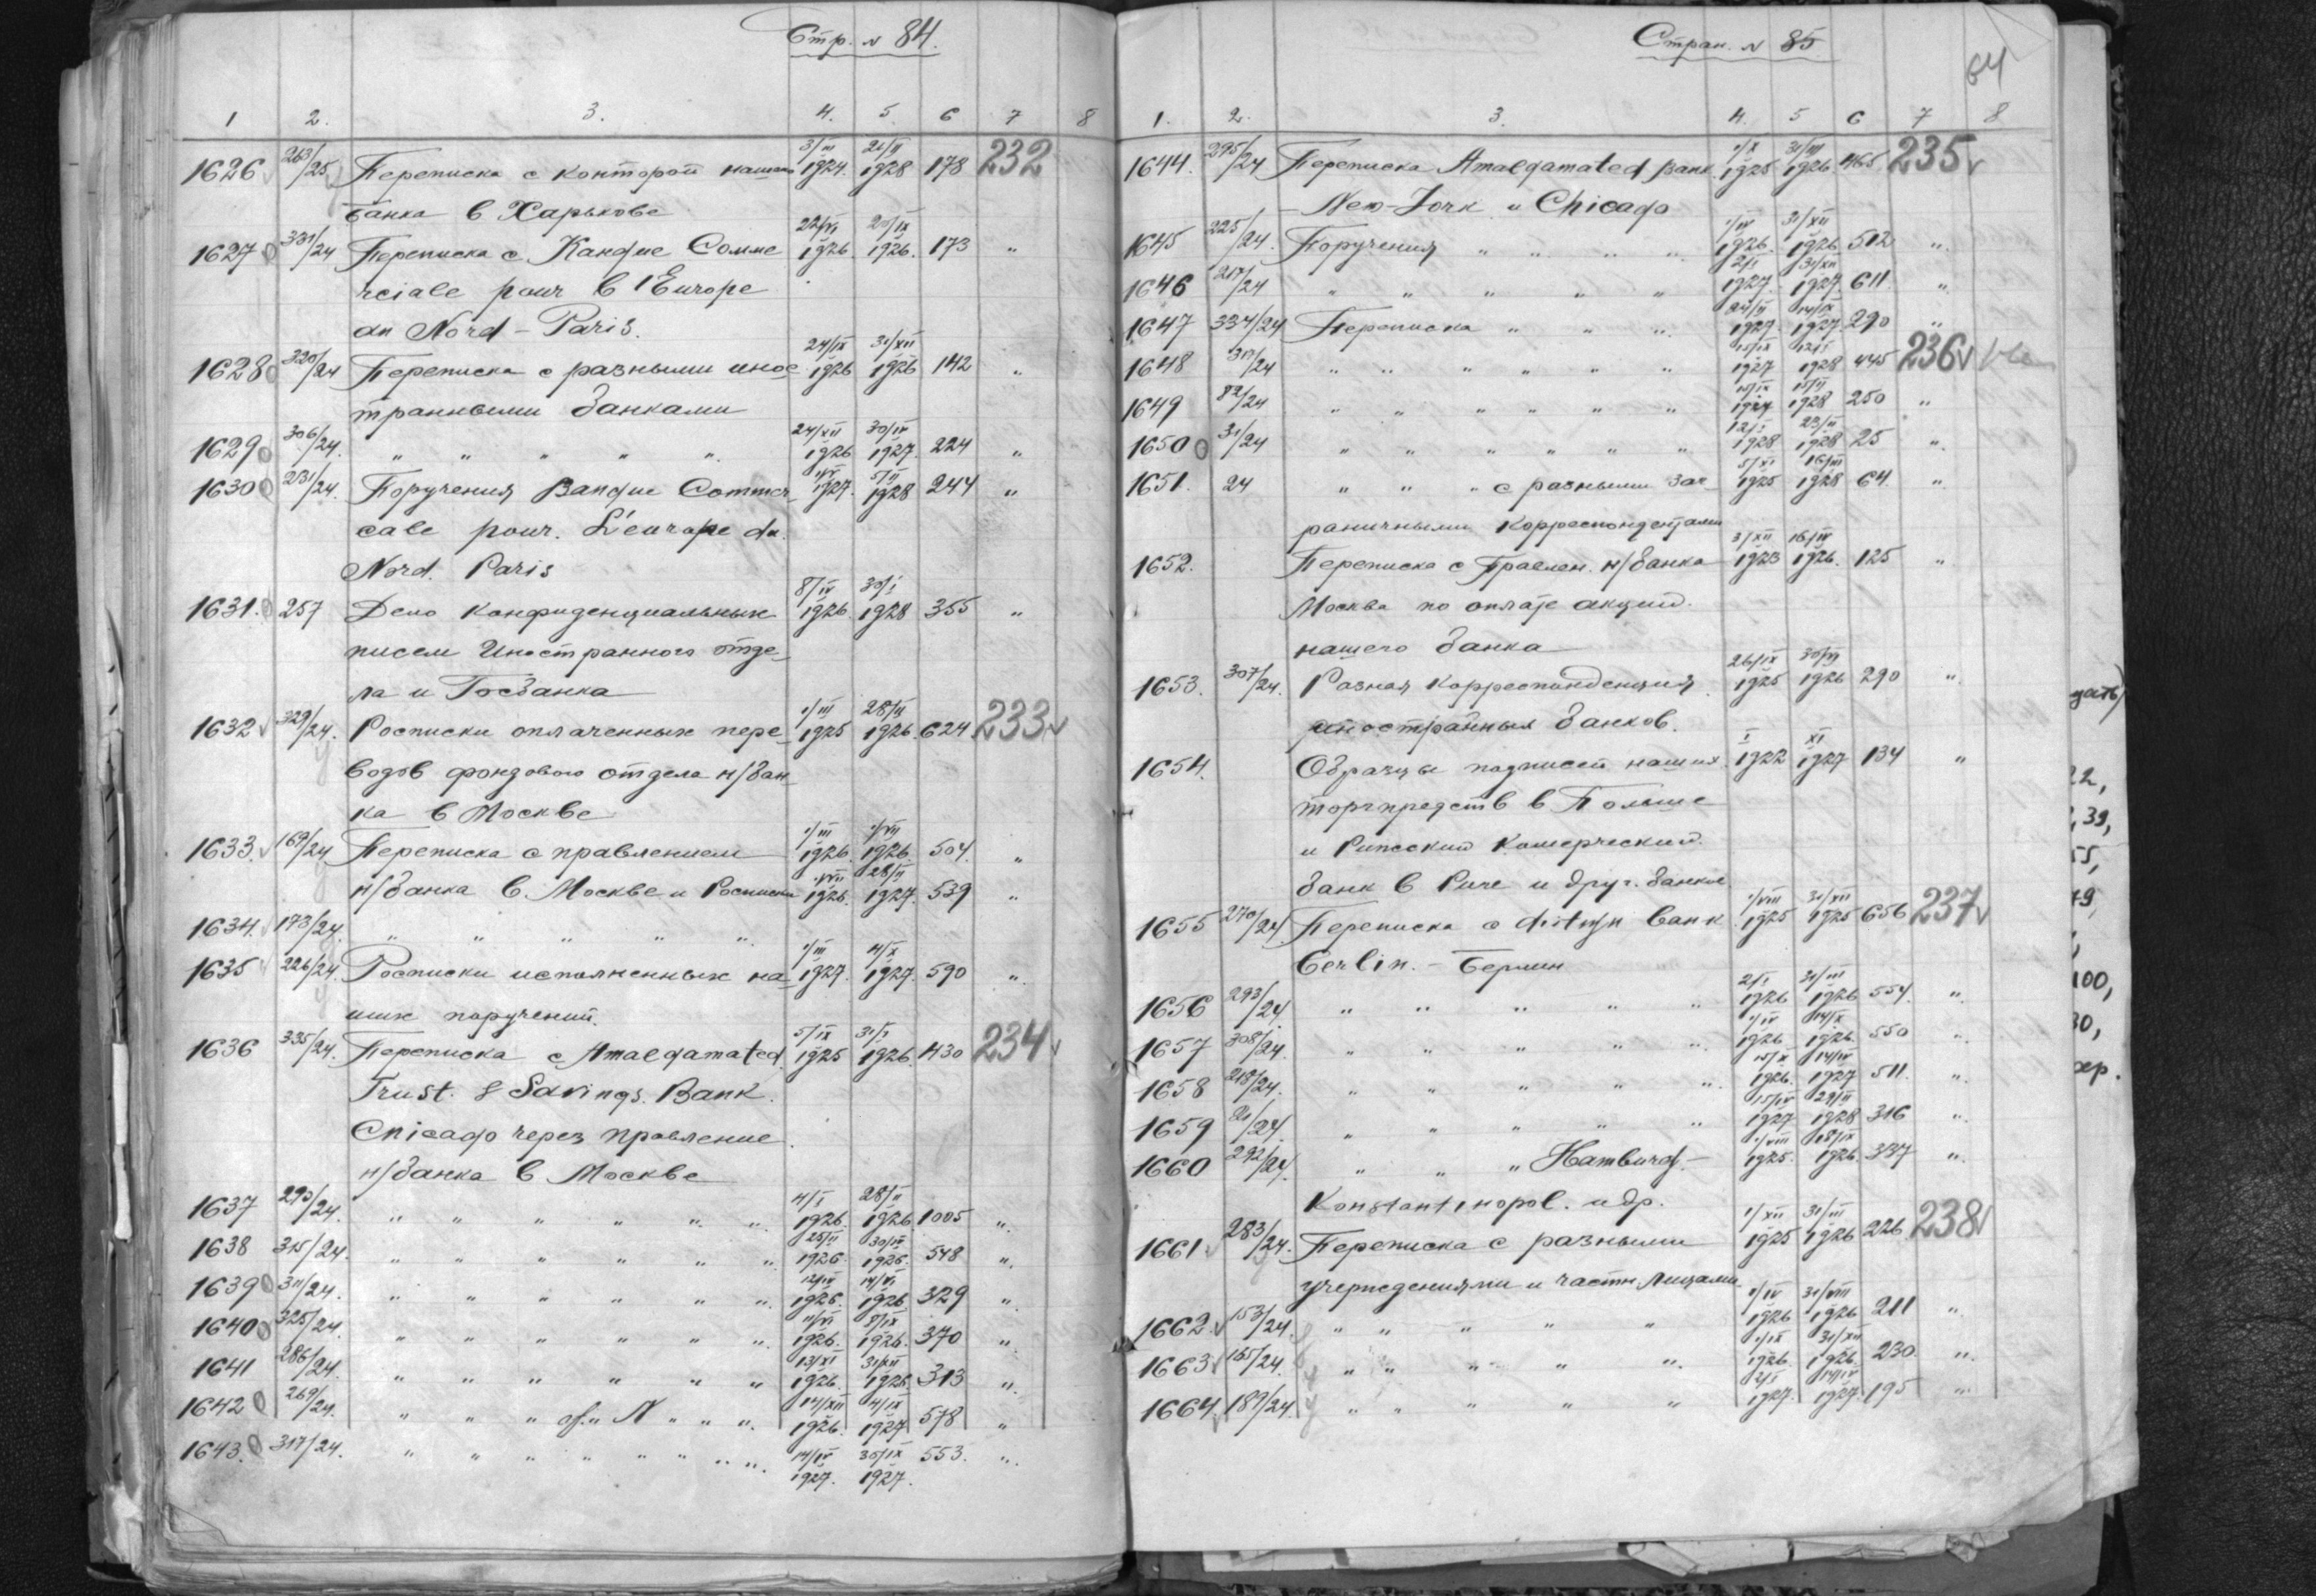 Стр. № 84.
1 2. 3. 4. 5. 6 7 8
1626 263/25 Переписка с конторой нашего 3/III 1924. 21/II 1928 178 232
банка в Харькове
1627 331/24 Переписка с Banque Comme 22/VI 1926. 20/IX 1926. 173 "
rciale pour l'Europe
du Nord – Paris.
1628 320/24 Переписка с разными инос 24/IX 1926 31/XII 1926 142 "
транными банками
1629 306/24. " " " " " 24/XII 1926 30/IV 1927. 224 "
1630 231/24. Поручения Banque Commer- 1927. 5/II 1928 244 "
cale pour. L'europe du.
Nord. Paris
1631. 257 Дело конфиденциальных 8/IV 1926. 30/I 1928 355 "
писем Иностранного отде-
ла и Госбанка
1632 329/24. Росписки оплаченных пере- 1/III 1925 28/II 1926. 624 233
водов фондового отдела н/бан
ка в Москве
1633. 169/24 Переписка с правлением 1/III 1926. 1/VII 1926. 504. "
н/банка в Москве и Росписки 1/VII 1926. 28/II 1927. 539 "
1634. 173/24. " " " " "
1635 226/24. Росписки исполненных на- 1/III 1927. 4/X 1927. 590 "
ших поручений.
1636 335/24. Переписка с Amalgamated 5/IX 1925 31/I 1926. 430 234
Trust. & Savings. Bank.
Chicago через правление
н/банка в Москве
1637 290/24. " " " " " " 4/I 1926. 28/II 1926 1005 "
1638 315/24. " " " " " " 25/II 1926. 30/IV 1926. 548 "
1639 311/24. " " " " " " 12/IV 1926. 14/VI 1926 329 "
1640 325/24. " " " " " " 11/VI 1926. 8/IX 1926. 370 "
1641 286/24. " " " " " " 13/XI 1926. 31/XII 1926. 313 "
1642 269/24. " " " " N " " " 14/XII 1926. 4/IX 1927 578 "
1643. 317/24. " " " " " " " " 14/IV 1927. 30/IX 1927. 553. "
Стран. № 85
64
1. 2. 3. 4. 5 6 7 8
1644. 295/24 Переписка Amalgamated Bank. 1/X 1925 31/III 1926. 465 235
New-Jork и Chicago
1645 225/24. Поручения " " " " 1/IV 1926. 31/XII 1926 512 "
1646 217/24 " " " " " 2/I 1927. 31/XII 1927 611 "
1647 334/24 Переписка " " " 24/II 1927. 14/IX 1927. 290 "
1648 313/24 " " " " " " 15/IX 1927 12/I 1928 445 236
1649 82/24 " " " " " " 15/IX 1927 15/II 1928 250 "
1650 31/24 " " " " " " 12/I 1928 23/II 1928 25 "
1651. 24 " " " с разными заг- 5/XI 1925 16/III 1928 64. "
раничными корреспондентами
1652. Переписка с Правлен. н/банка 3/XII 1923 16/IV 1926. 125 "
Москва по оплате акций.
нашего банка
1653. 307/24. Разная корреспонденция 26/IX 1925 30/VI 1926 290 "
иностранных банков.
1654. Образцы подписей наших I 1922 XI 1927 134 "
торгпредств в Польше
и Рижский Комерческий.
банк в Риге и друг. банков
1655 270/24. Переписка с Bank 1/VIII 1925 31/XII 1925 656 237
Berlin. – Берлин
1656 293/24. " " " " " 2/I 1926 31/III 1926 554. "
1657 308/24. " " " " " 1/IV 1926 14/X 1926. 550 "
1658 218/24. " " " " " 15/X 1926. 14/IV 1927 511. "
1659 21/24. " " " " " 15/IV 1927 29/II 1928 316 "
1660 292/24. " " " Hamburg.– 1/VIII 1925. 18/IX 1926. 337 "
Konstantinopol. и др.
1661 283/24. Переписка с разными 1/XII 1925 31/III 1926 226. 238
учереждениями и частн. лицами
1662. 153/24. " " " " " 1/IV 1926 31/VIII 1926 211 "
1663 165/24. " " " " " 1/IX 1926. 31/XII 1926. 230. "
1664. 189/24. " " " " " 2/I 1927. 14/IV 1927. 195 "